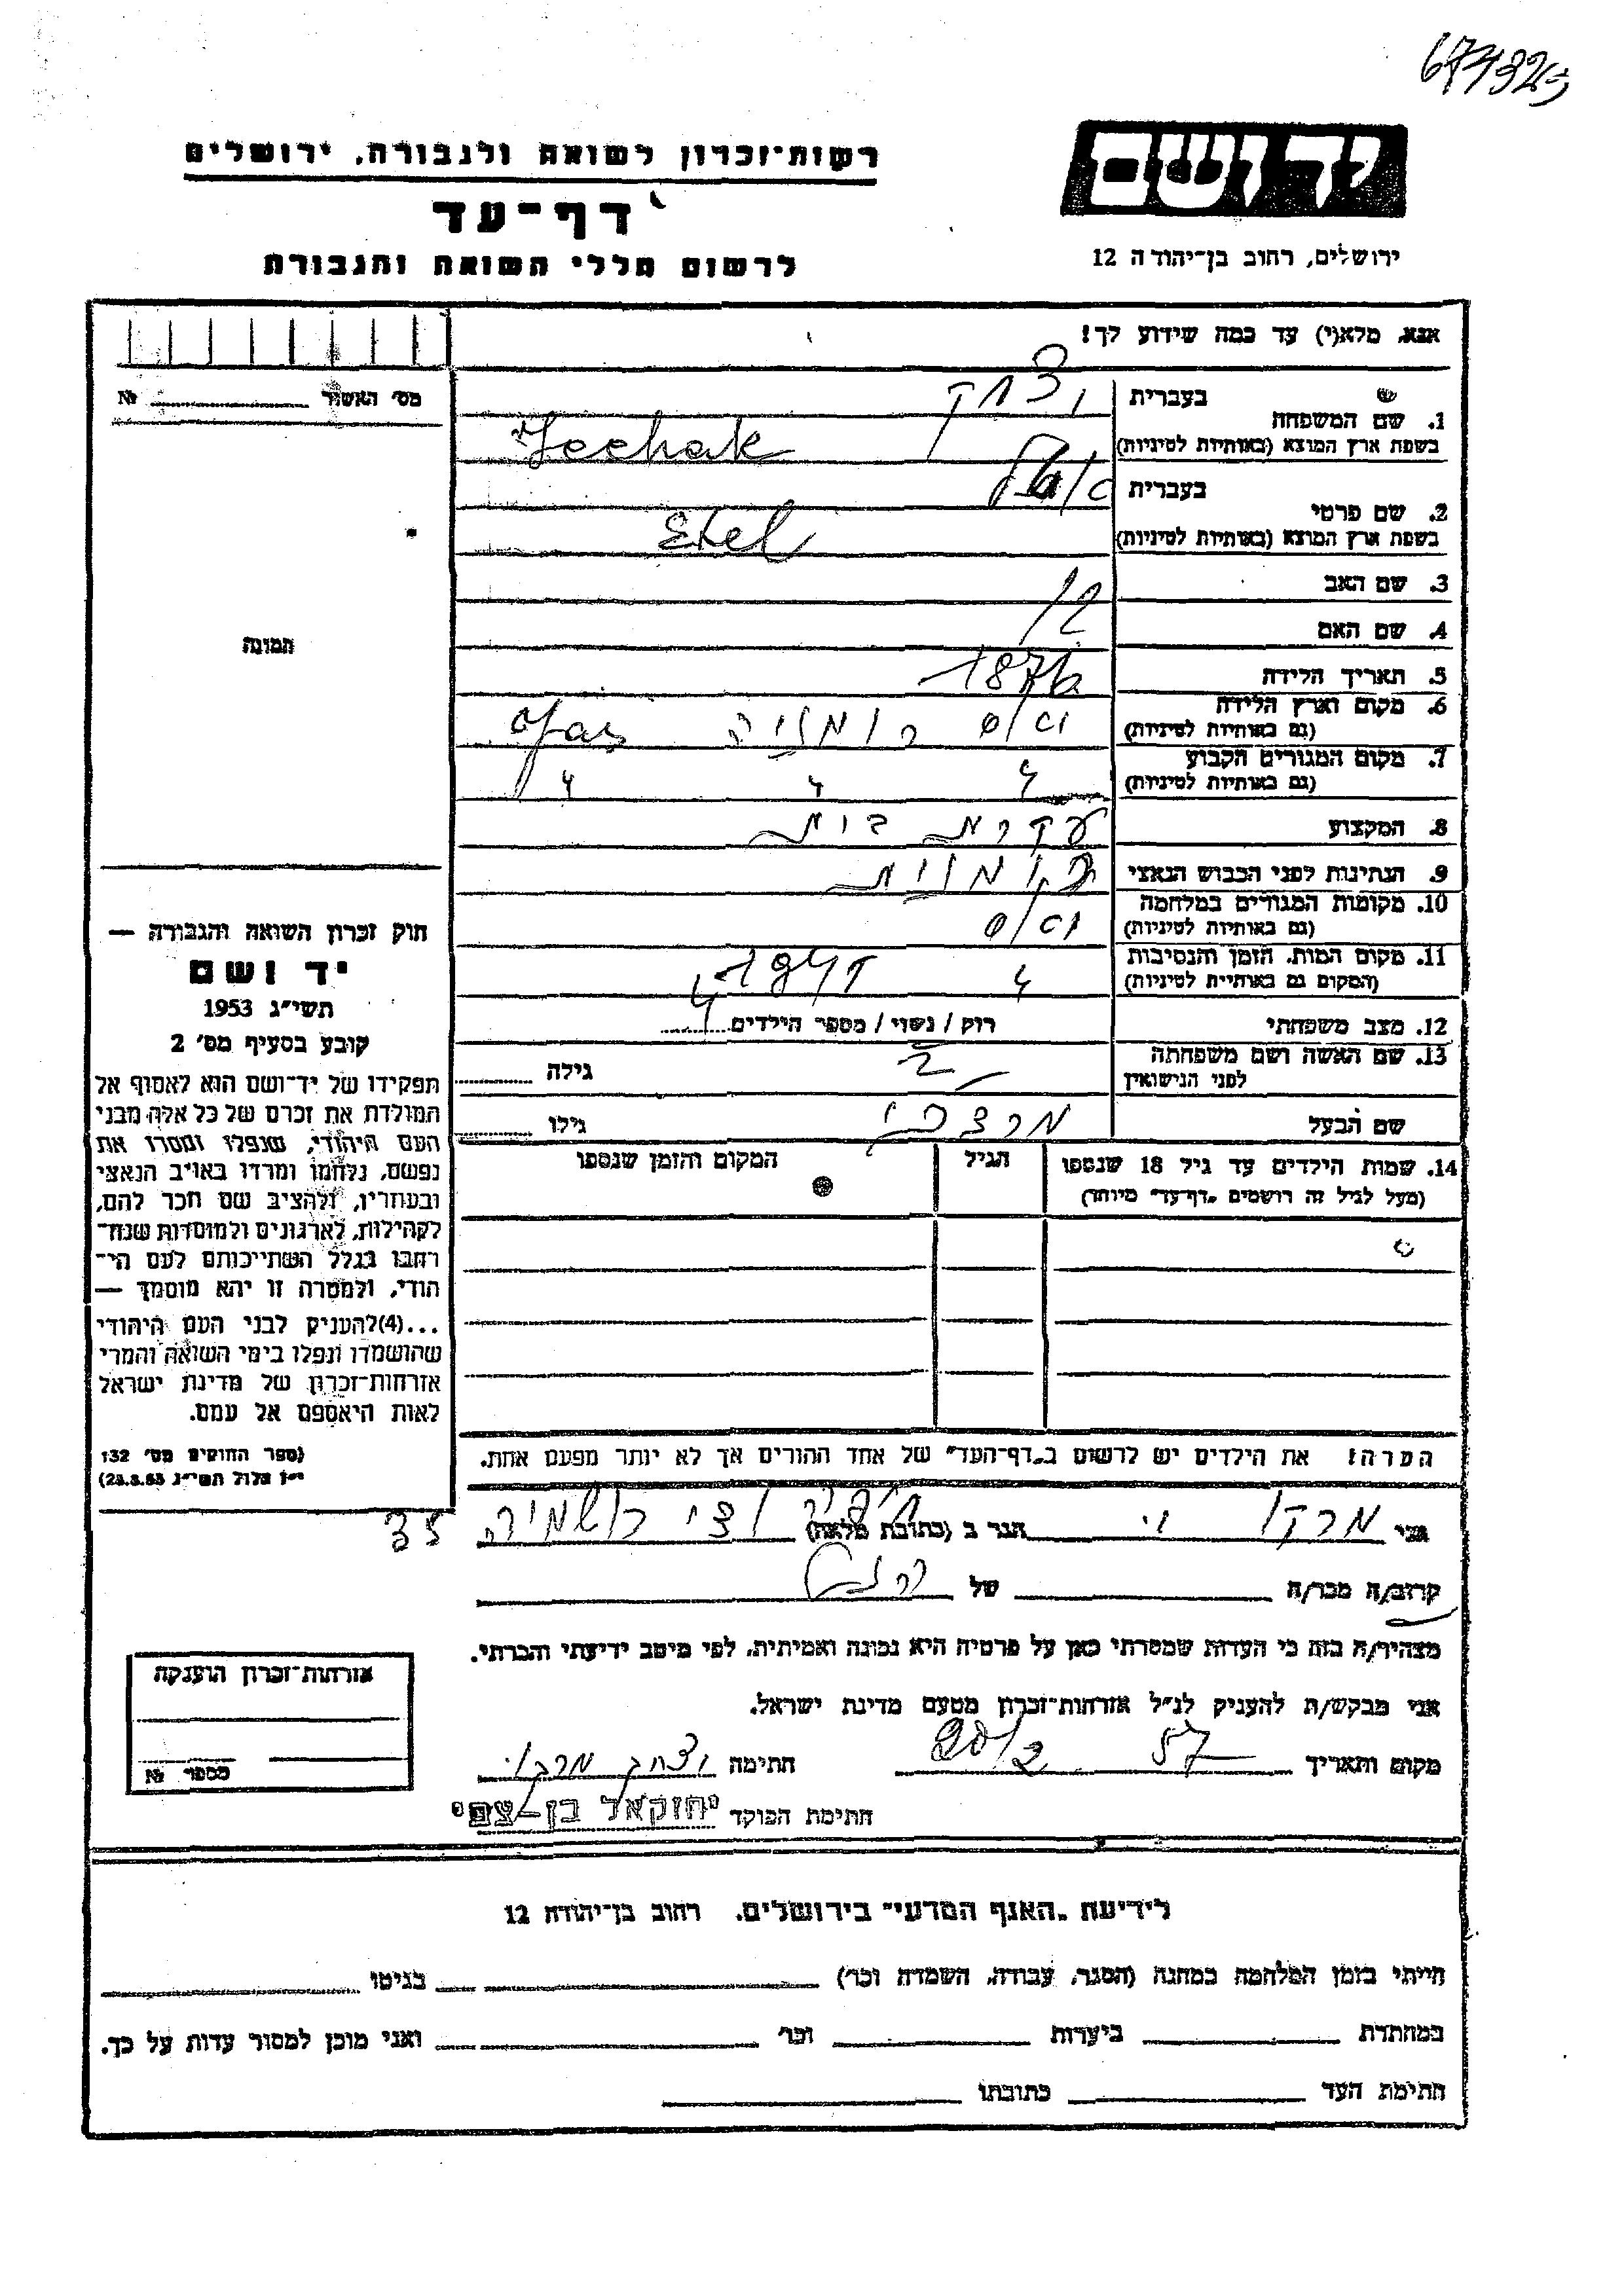 677325
יד ושם
ירושלים, רחוב בן־יהודה 12
רשות־זכרון לשואה ולגבורה, ירושלים
דף־עד
לרשום חללי השואה והגבורה
אנא, מלא(י) עד כמה שידוע לך!
מס' האשור №
1. שם המשפחה
בעברית יצחק
בשפת ארץ המוצא (באותיות לטיניות) Jechak
2. שם פרטי
בעברית
בשפת ארץ המוצא (באותיות לטיניות) Etel
3. שם האב
4. שם האם
5. תאריך הלידה 1876
6. מקום וארץ הלידה
(גם באותיות לטיניות) רומניה Jas
7. מקום המגורים הקבוע
(גם באותיות לטיניות) 〃 〃 〃
8. המקצוע עקרת בית
9. הנתינות לפני הכבוש הנאצי רומנית
10. מקומות המגורים במלחמה
(גם באותיות לטיניות)
11. מקום המות, הזמן והנסיבות
(המקום גם באותיות לטיניות) 〃
12. מצב משפחתי רוק / נשוי / מספר הילדים 4
13. שם האשה ושם משפחתה
לפני הנישואין גילה
שם הבעל מרדכי גילו
14. שמות הילדים עד גיל 18 שנספו
(מעל לגיל זה רושמים "דף־עד" מיוחד)
הגיל
המקום והזמן שנספו
הערה: את הילדים יש לרשום ב"דף־העד" של אחד ההורים אך לא יותר מפעם אחת.
תמונה
חוק זכרון השואה והגבורה —
יד ושם
תשי"ג 1953
קובע בסעיף מס' 2
תפקידו של יד־ושם הוא לאסוף אל
המולדת את זכרם של כל אלה מבני
העם היהודי, שנפלו ומסרו את
נפשם, נלחמו ומרדו באויב הנאצי
ובעוזריו, ולהציב שם וזכר להם,
לקהילות, לארגונים ולמוסדות שנח־
רבו בגלל השתייכותם לעם הי־
הודי, ולמטרה זו יהא מוסמך —
...(4)להעניק לבני העם היהודי
שהושמדו ונפלו בימי השואה והמרי
אזרחות־זכרון של מדינת ישראל
לאות היאספם אל עמם.
(ספר החוקים מס' 132
י"ז אלול תשי"ג 28.8.53)
אני מרקו י. הגר ב (כתובת מלאה) חיפה ואדי רושמיה 35
קרוב/ה מכר/ה של
מצהיר/ה בזה כי העדות שמסרתי כאן על פרטיה היא נכונה ואמיתית, לפי מיטב ידיעתי והכרתי.
אני מבקש/ת להעניק לנ"ל אזרחות־זכרון מטעם מדינת ישראל.
מקום ותאריך 20/2 57 חתימה יצחק מרקו
חתימת הפוקד יחזקאל בן-צבי
אזרחות־זכרון הוענקה
מספר №
לידיעת "האגף המדעי" בירושלים, רחוב בן־יהודה 12
הייתי בזמן המלחמה במחנה (הסגר, עבודה, השמדה וכו') בגיטו
במחתרת ביערות וכו' ואני מוכן למסור עדות על כך.
חתימת העד כתובתו